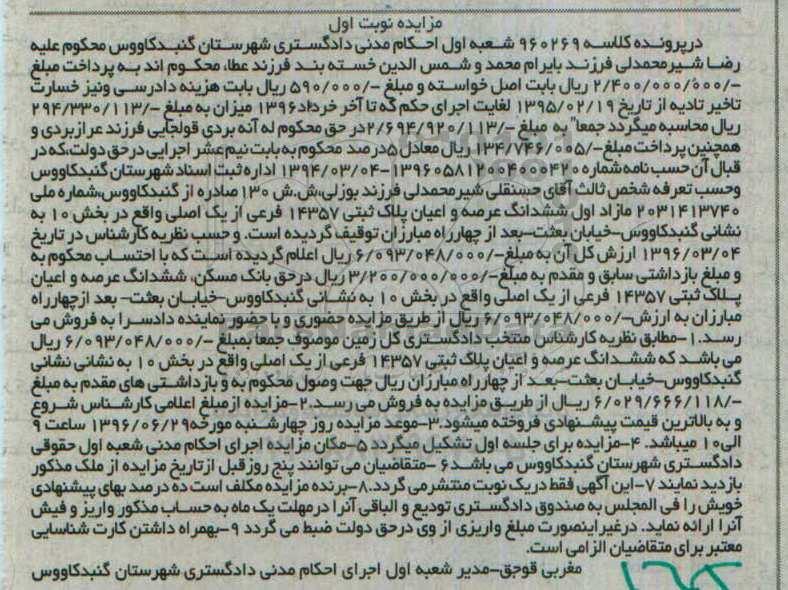 مزایده نوبت اول
درپرونده کلاسه ۹۶۰۲۶۹ شعبه اول احکام مدنی دادگستری شهرستان گنبدکاووس محکوم علیه
رضا شیرمحمدلی فرزند بایرام محمد و شمس الدین خسته بند فرزند عطا، محکوم اند به پرداخت مبلغ
۲/۴۰۰/۰۰۰/۰۰۰/- ریال بابت اصل خواسته و مبلغ ۵۹۰/۰۰۰/- ریال بابت هزینه دادرسی ونیز خسارت
تاخیر تادیه از تاریخ ۱۳۹۵/۰۲/۱۹ لغایت اجرای حکم که تا آخر خرداد۱۳۹۶ میزان به مبلغ ۲۹۴/۳۳۰/۱۱۳/-
ریال محاسبه میگردد جمعا" به مبلغ ۲/۶۹۴/۹۲۰/۱۱۳/-در حق محکوم له آنه بردی قولجایی فرزند عرازبردی و
همچنین پرداخت مبلغ ۱۳۴/۷۴۶/۰۰۵/- ریال معادل ۵درصد محکوم به بابت نیم عشر اجرایی درحق دولت،که در
قبال آن حسب نامه شماره ۱۳۹۶۰۵۸۱۲۰۰۴۰۰۰۴۲۰-۱۳۹۴/۰۳/۰۴ اداره ثبت اسناد شهرستان گنبدکاووس
وحسب تعرفه شخص ثالث آقای حسنقلی شیرمحمدلی فرزند بوزلی،ش.ش ۱۳۰ صادره از گنبدکاووس،شماره ملی
۲۰۳۱۴۱۳۷۴۰ مازاد اول ششدانگ عرصه و اعیان پلاک ثبتی ۱۴۳۵۷ فرعی از یک اصلی واقع در بخش ۱۰ به
نشانی گنبدکاووس-خیابان بعثت-بعد از چهارراه مبارزان توقیف گردیده است. و حسب نظریه کارشناس در تاریخ
۱۳۹۶/۰۳/۰۴ ارزش کل آن به مبلغ ۶/۰۹۳/۰۴۸/۰۰۰/- ریال اعلام گردیده است که با احتساب محکوم به
و مبلغ بازداشتی سابق و مقدم به مبلغ ۳/۲۰۰/۰۰۰/۰۰۰/- ریال درحق بانک مسکن، ششدانگ عرصه و اعیان
پلاک ثبتی ۱۴۳۵۷ فرعی از یک اصلی واقع در بخش ۱۰ به نشانی گنبدکاووس-خیابان بعثت- بعد ازچهارراه
مبارزان به ارزش ۶/۰۹۳/۰۴۸/۰۰۰/- ریال از طریق مزایده حضوری و با حضور نماینده دادسرا به فروش می
رسد.۱-مطابق نظریه کارشناس منتخب دادگستری کل زمین موصوف جمعا بمبلغ ۶/۰۹۳/۰۴۸/۰۰۰/- ریال
می باشد که ششدانگ عرصه و اعیان پلاک ثبتی ۱۴۳۵۷ فرعی از یک اصلی واقع در بخش ۱۰ به نشانی نشانی
گنبدکاووس-خیابان بعثت-بعد از چهارراه مبارزان ریال جهت وصول محکوم به و بازداشتی های مقدم به مبلغ
۶/۰۲۹/۶۶۶/۱۱۸/- ریال از طریق مزایده به فروش می رسد.۲-مزایده ازمبلغ اعلامی کارشناس شروع
و به بالاترین قیمت پیشنهادی فروخته میشود.۳-موعد مزایده روز چهارشنبه مورخه۱۳۹۶/۰۶/۲۹ ساعت ۹
الی۱۰ میباشد. ۴-مزایده برای جلسه اول تشکیل میگردد ۵-مکان مزایده اجرای احکام مدنی شعبه اول حقوقی
دادگستری شهرستان گنبدکاووس می باشد ۶-متقاضیان می توانند پنج روز قبل ازتاریخ مزایده از ملک مذکور
بازدید نمایند ۷-این آگهی فقط دریک نوبت منتشرمی گردد.۸-برنده مزایده مکلف است ده درصد بهای پیشنهادی
خویش را فی المجلس به صندوق دادگستری تودیع و الباقی آنرا درمهلت یک ماه به حساب مذکور واریز و فیش
آنرا ارائه نماید. درغیراینصورت مبلغ واریزی از وی درحق دولت ضبط می گردد ۹-بهمراه داشتن کارت شناسایی
معتبر برای متقاضیان الزامی است.
مغربی قوجق-مدیر شعبه اول اجرای احکام مدنی دادگستری شهرستان گنبدکاووس